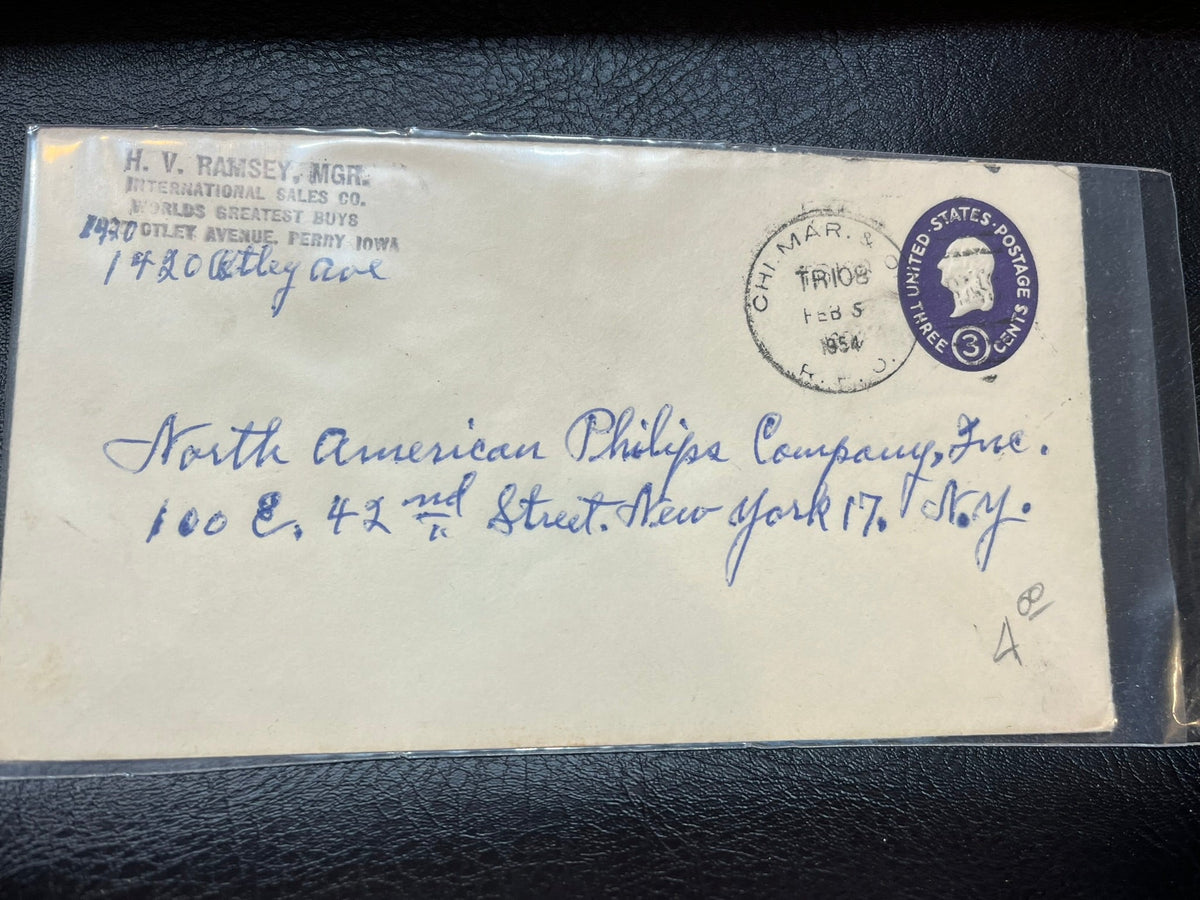 H. V. RAMSEY, MGR.
INTERNATIONAL SALES CO.
WORLDS GREATEST BUYS
1420 OTLEY AVENUE, PERRY IOWA
1420 Otley Ave
CHI. MAR. & O
TR108
FEB 5
1954
R.P.O.
UNITED STATES POSTAGE
THREE 3 CENTS
North American Philips Company, Inc.
100 E. 42nd Street. New York 17. N.Y.
4